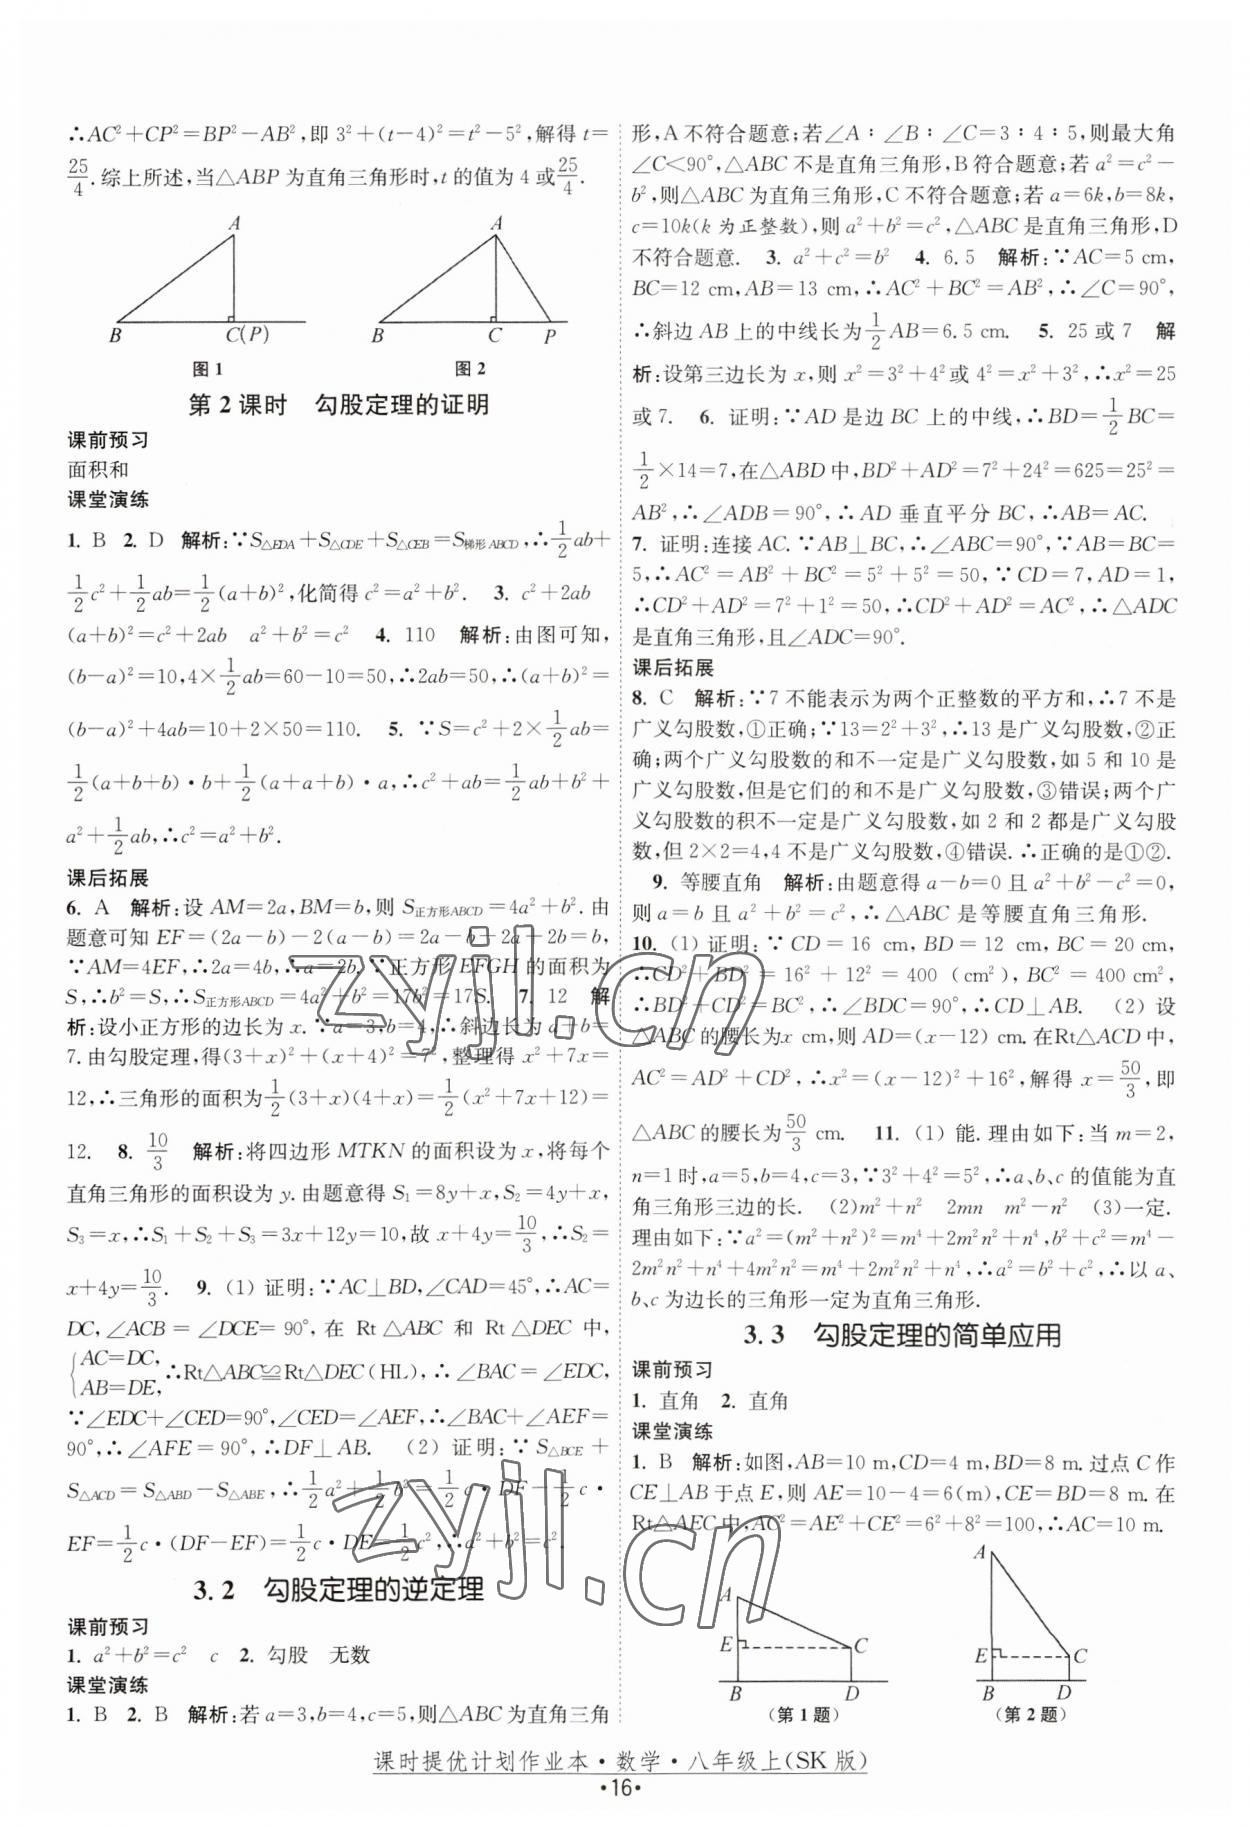 ∴AC²+CP²=BP²-AB²,即 3²+(t-4)²=t²-5²,解得 t=
25/4.综上所述,当△ABP 为直角三角形时,t 的值为 4 或25/4.
A
B
C(P)
图 1
A
B
C
P
图 2
第 2 课时 勾股定理的证明
课前预习
面积和
课堂演练
1. B 2. D 解析:∵S△EDA+S△CDE+S△CEB=S梯形ABCD,∴1/2ab+
1/2c²+1/2ab=1/2(a+b)²,化简得 c²=a²+b². 3. c²+2ab
(a+b)²=c²+2ab a²+b²=c² 4. 110 解析:由图可知,
(b-a)²=10,4×1/2ab=60-10=50,∴2ab=50,∴(a+b)²=
(b-a)²+4ab=10+2×50=110. 5. ∵S=c²+2×1/2ab=
1/2(a+b+b)·b+1/2(a+a+b)·a,∴c²+ab=1/2ab+b²+
a²+1/2ab,∴c²=a²+b².
课后拓展
6. A 解析:设 AM=2a,BM=b,则 S正方形ABCD=4a²+b².由
题意可知 EF=(2a-b)-2(a-b)=2a-b-2a+2b=b,
∵AM=4EF,∴2a=4b,∴a=2b.∵正方形 EFGH 的面积为
S,∴b²=S,∴S正方形ABCD=4a²+b²=17b²=17S. 7. 12 解
析:设小正方形的边长为 x.∵a=3,b=4,∴斜边长为 a+b=
7.由勾股定理,得(3+x)²+(x+4)²=7²,整理得 x²+7x=
12,∴三角形的面积为1/2(3+x)(4+x)=1/2(x²+7x+12)=
12. 8. 10/3 解析:将四边形 MTKN 的面积设为 x,将每个
直角三角形的面积设为 y.由题意得 S₁=8y+x,S₂=4y+x,
S₃=x,∴S₁+S₂+S₃=3x+12y=10,故 x+4y=10/3,∴S₂=
x+4y=10/3. 9. (1) 证明:∵AC⊥BD,∠CAD=45°,∴AC=
DC,∠ACB = ∠DCE = 90°,在 Rt △ABC 和 Rt △DEC 中,
{AC=DC,
AB=DE, ∴Rt△ABC≌Rt△DEC(HL),∴∠BAC=∠EDC,
∵∠EDC+∠CED=90°,∠CED=∠AEF,∴∠BAC+∠AEF=
90°,∴∠AFE = 90°,∴DF⊥AB. (2) 证明:∵S△BCE +
S△ACD=S△ABD-S△ABE,∴1/2a²+1/2b²=1/2c·DF-1/2c·
EF=1/2c·(DF-EF)=1/2c·DE=1/2c²,∴a²+b²=c².
3. 2 勾股定理的逆定理
课前预习
1. a²+b²=c² c 2. 勾股 无数
课堂演练
1. B 2. B 解析:若 a=3,b=4,c=5,则△ABC 为直角三角
形,A 不符合题意;若∠A∶∠B∶∠C=3∶4∶5,则最大角
∠C<90°,△ABC 不是直角三角形,B 符合题意;若 a²=c²-
b²,则△ABC 为直角三角形,C 不符合题意;若 a=6k,b=8k,
c=10k(k 为正整数),则 a²+b²=c²,△ABC 是直角三角形,D
不符合题意. 3. a²+c²=b² 4. 6.5 解析:∵AC=5 cm,
BC=12 cm,AB=13 cm,∴AC²+BC²=AB²,∴∠C=90°,
∴斜边 AB 上的中线长为1/2AB=6.5 cm. 5. 25 或 7 解
析:设第三边长为 x,则 x²=3²+4² 或 4²=x²+3²,∴x²=25
或 7. 6. 证明:∵AD 是边 BC 上的中线,∴BD=1/2BC=
1/2×14=7,在△ABD 中,BD²+AD²=7²+24²=625=25²=
AB²,∴∠ADB=90°,∴AD 垂直平分 BC,∴AB=AC.
7. 证明:连接 AC.∵AB⊥BC,∴∠ABC=90°,∵AB=BC=
5,∴AC²=AB²+BC²=5²+5²=50,∵CD=7,AD=1,
∴CD²+AD²=7²+1²=50,∴CD²+AD²=AC²,∴△ADC
是直角三角形,且∠ADC=90°.
课后拓展
8. C 解析:∵7 不能表示为两个正整数的平方和,∴7 不是
广义勾股数,①正确;∵13=2²+3²,∴13 是广义勾股数,②正
确;两个广义勾股数的和不一定是广义勾股数,如 5 和 10 是
广义勾股数,但是它们的和不是广义勾股数,③错误;两个广
义勾股数的积不一定是广义勾股数,如 2 和 2 都是广义勾股
数,但 2×2=4,4 不是广义勾股数,④错误.∴正确的是①②.
9. 等腰直角 解析:由题意得 a-b=0 且 a²+b²-c²=0,
则 a=b 且 a²+b²=c²,∴△ABC 是等腰直角三角形.
10. (1) 证明:∵CD=16 cm,BD=12 cm,BC=20 cm,
∴CD²+BD²=16²+12²=400 (cm²),BC²=400 cm²,
∴BD²+CD²=BC²,∴∠BDC=90°,∴CD⊥AB. (2) 设
△ABC 的腰长为x cm,则 AD=(x-12) cm.在Rt△ACD 中,
AC²=AD²+CD²,∴x²=(x-12)²+16²,解得 x=50/3,即
△ABC 的腰长为50/3 cm. 11. (1) 能.理由如下:当 m=2,
n=1 时,a=5,b=4,c=3,∵3²+4²=5²,∴a、b、c 的值能为直
角三角形三边的长. (2)m²+n² 2mn m²-n² (3)一定.
理由如下:∵a²=(m²+n²)²=m⁴+2m²n²+n⁴,b²+c²=m⁴-
2m²n²+n⁴+4m²n²=m⁴+2m²n²+n⁴,∴a²=b²+c²,∴以 a、
b、c 为边长的三角形一定为直角三角形.
3. 3 勾股定理的简单应用
课前预习
1. 直角 2. 直角
课堂演练
1. B 解析:如图,AB=10 m,CD=4 m,BD=8 m.过点 C 作
CE⊥AB 于点 E,则 AE=10-4=6(m),CE=BD=8 m.在
Rt△AEC 中,AC²=AE²+CE²=6²+8²=100,∴AC=10 m.
A
E
C
B
D
(第 1 题)
A
E
C
B
D
(第 2 题)
zyjl.cn
zyjl.cn
课时提优计划作业本·数学·八年级上(SK 版)
·16·